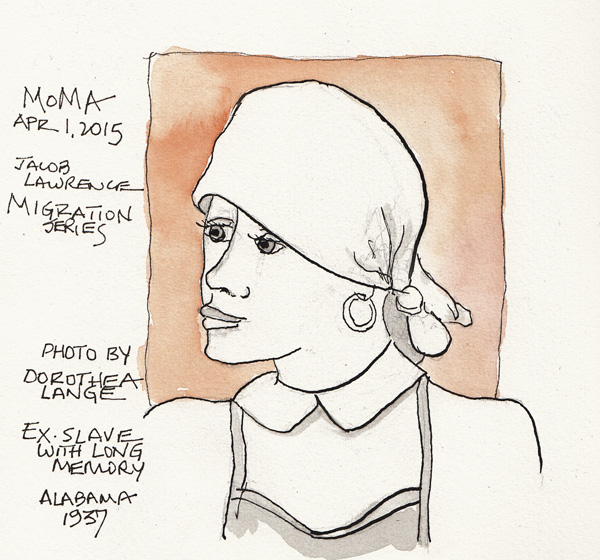 MOMA
APR 1, 2015
JACOB
LAWRENCE
MIGRATION
SERIES
PHOTO BY
DOROTHEA
LANGE
EX-SLAVE
WITH LONG
MEMORY
ALABAMA
1937